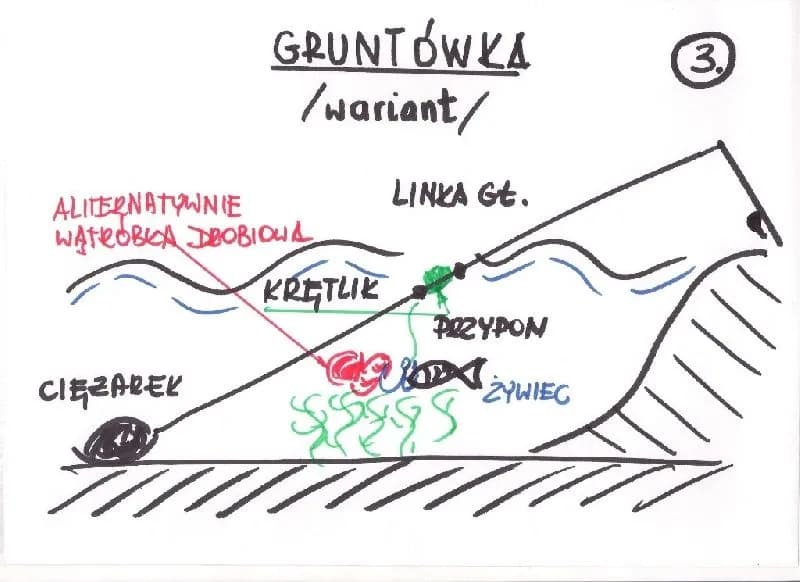 GRUNTÓWKA
3.
/wariant/
LINKA GŁ.
ALTERNATYWNIE
WĄTRÓBKA DROBIOWA
KRĘTLIK
PRZYPON
CIĘŻAREK
ŻYWIEC